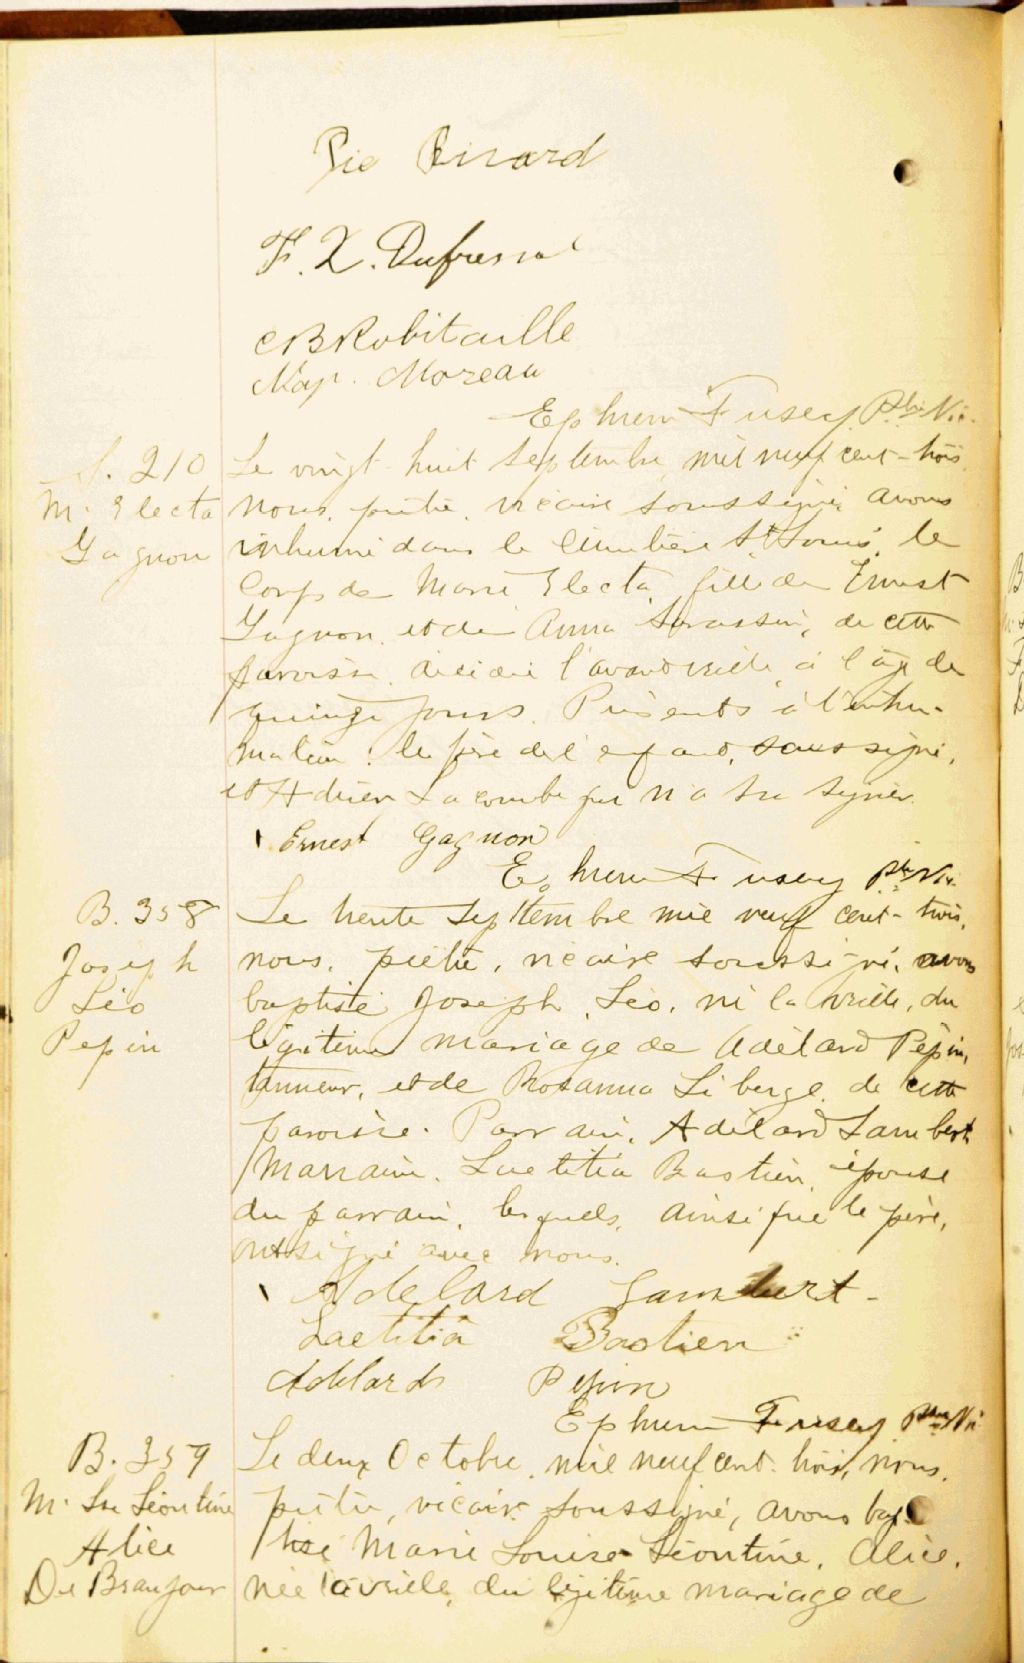 Pie
F. X. Dufresne
C B Robitaille
Nap. Moreau
Ephrem Fusey Ptre Vic.
S. 210
M. Electa
Gagnon
Le vingt-huit septembre mil neuf cent-trois
nous, prêtre, vicaire soussigné, avons
inhumé dans le cimetière St. Louis, le
corps de Marie Electa, fille de Ernest
Gagnon et de Anna Sarassin, de cette
paroisse, décédée l'avant veille à l'âge de
quinze jours. Présents à l'inhu-
mation : le père de l'enfant, soussigné,
et Adrien Lacombe qui n'a su signer.
Ernest Gagnon
Ephrem Fusey Ptre Vic.
B. 358
Joseph
Léo
Pepin
Le trente septembre mil neuf cent-trois,
nous, prêtre, vicaire soussigné, avons
baptisé Joseph, Léo, né la veille, du
légitime mariage de Adélard Pépin,
tanneur, et de Rosanna Liberge, de cette
paroisse. Parrain, Adélard Lambert
Marraine, Laetitia Bastien, épouse
du parrain, lesquels, ainsi que le père,
ont signé avec nous.
Adelard Lambert
Laetitia Bastien
Adelard Pepin
Ephrem Fusey Ptre Vic
B. 359
M. Lse Léontine
Alice
De Beaujour
Le deux Octobre, mil neuf cent-trois, nous,
prêtre, vicaire soussigné, avons bap-
tisé Marie Louise Léontine, Alice,
née la veille, du légitime mariage de